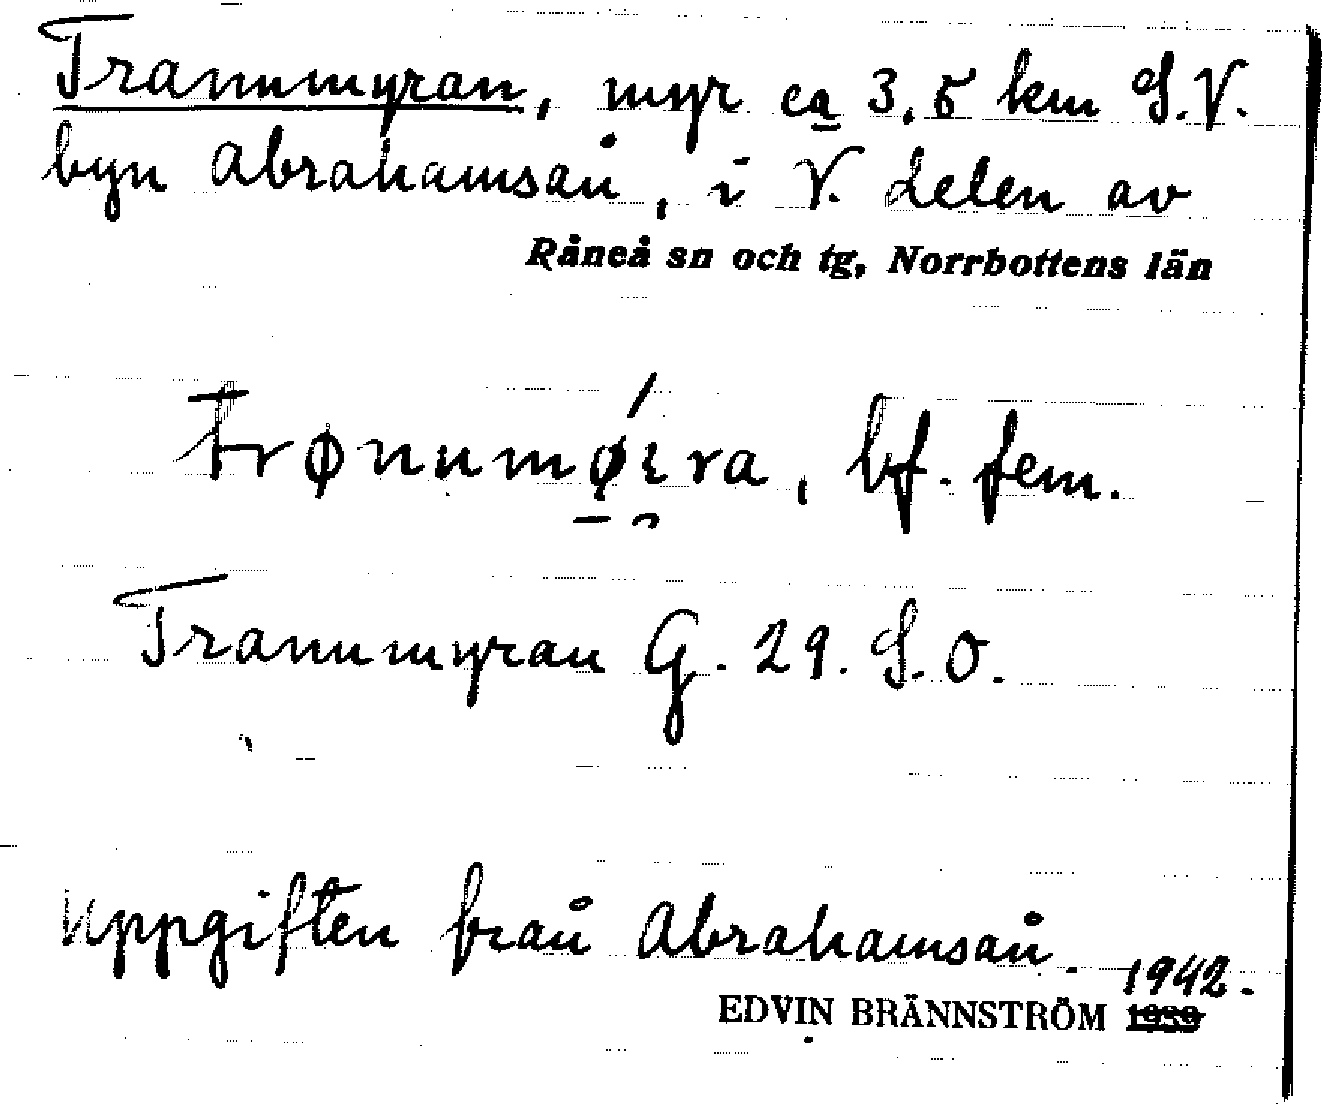 Tranumyran, myr ca 3,5 km S.V.
byn Abrahamsån, i V. delen av
Råneå sn och tg, Norrbottens län
trønumǿi̯ra, bf. fem.
Tranumyran G. 29. S.O.
Uppgiften från Abrahamsån.
1942.
EDVIN BRÄNNSTRÖM 1939